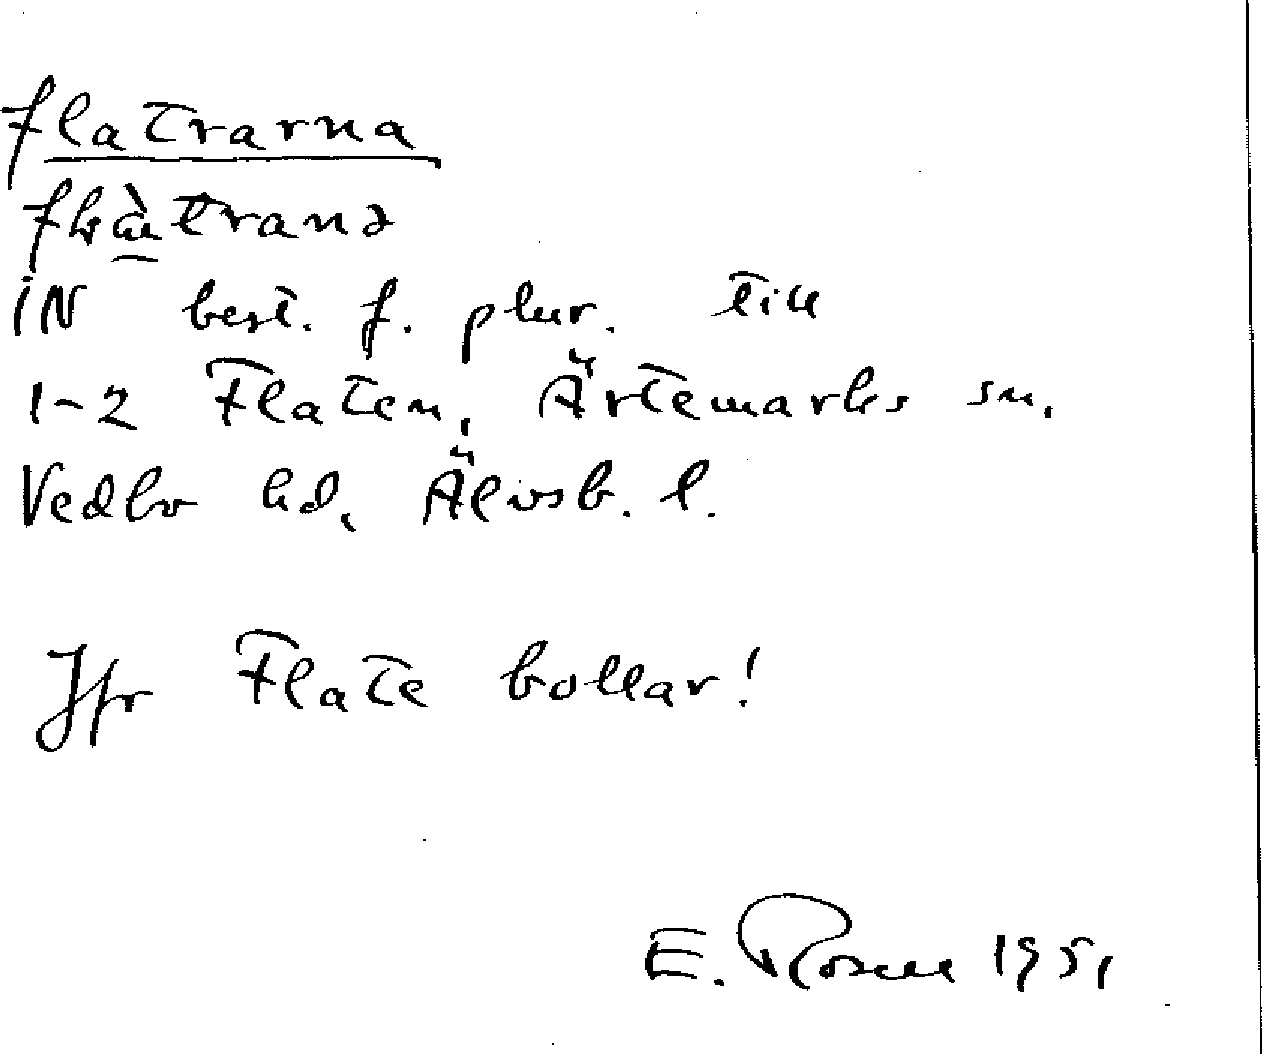 Flatrarna
IN best. f. plur. till
1-2 Flaten, Ärtemarks sn,
Vedbo hd, Älvsb. l.
Jfr Flate bollar!
E. Rosell 1951